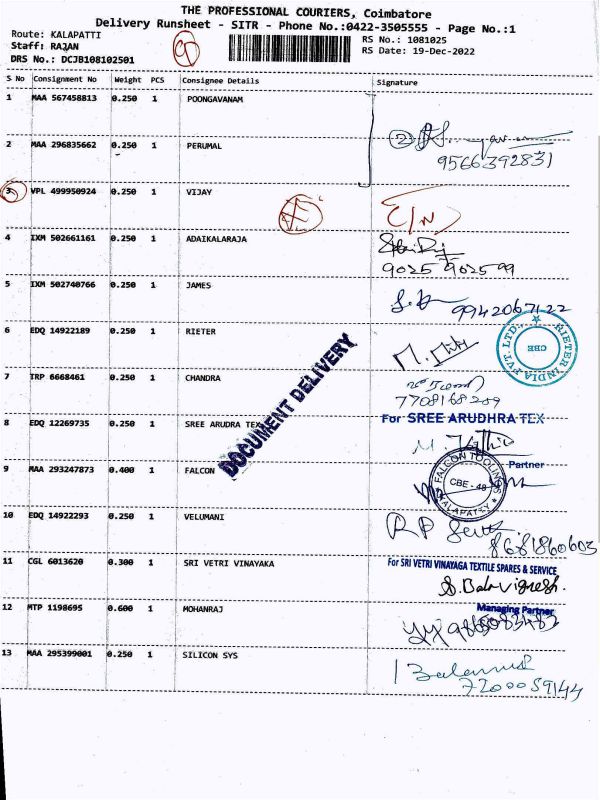 THE PROFESSIONAL COURIERS, Coimbatore
Delivery Runsheet - SITR - Phone No.:0422-3505555 - Page No.:1
Route: KALAPATTI
RS No.: 1081025
Staff: RAJAN
RS Date: 19-Dec-2022
DRS No.: DCJB108102501
S No Consignment No Weight PCS Consignee Details Signature
1 MAA 567458813 0.250 1 POONGAVANAM
2 MAA 296835662 0.250 1 PERUMAL
2
9566392831
3 VPL 499950924 0.250 1 VIJAY
4 IXM 502661161 0.250 1 ADAIKALARAJA
9025 902599
5 IXM 502740766 0.250 1 JAMES
9942067122
6 EDQ 14922189 0.250 1 RIETER
RIETER INDIA PVT. LTD.
CBE
7 TRP 6668461 0.250 1 CHANDRA
7708168209
DOCUMENT DELIVERY
8 EDQ 12269735 0.250 1 SREE ARUDRA TEX
For SREE ARUDHRA TEX
Partner
9 MAA 293247873 0.400 1 FALCON
FALCON TOOLINGS
CBE - 48
KALAPATTY
10 EDQ 14922293 0.250 1 VELUMANI
8681860603
11 CGL 6013620 0.300 1 SRI VETRI VINAYAKA
For SRI VETRI VINAYAGA TEXTILE SPARES & SERVICE
S.Balavignesh.
Managing Partner
12 MTP 1198695 0.600 1 MOHANRAJ
9865083482
13 MAA 295399001 0.250 1 SILICON SYS
7200059144